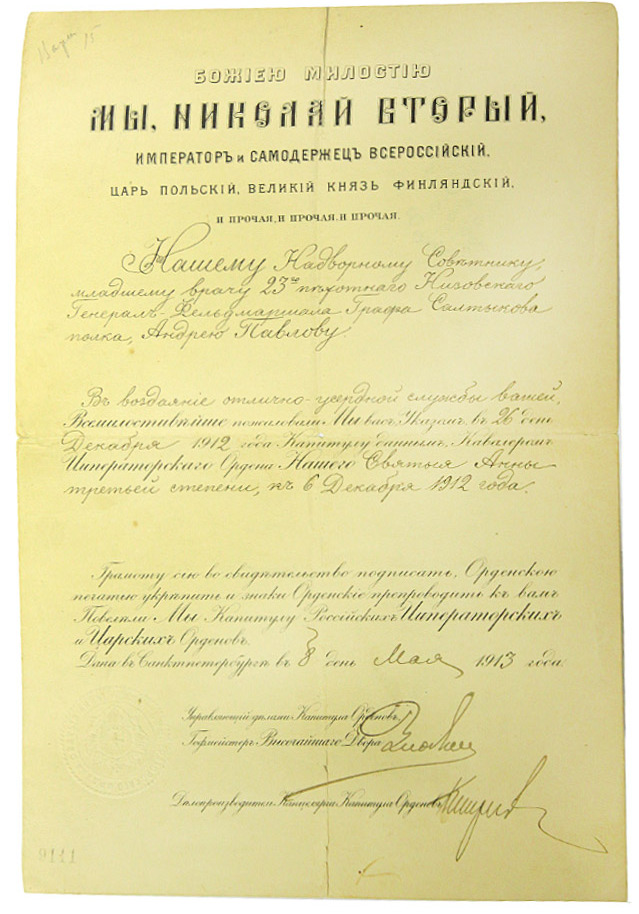 БОЖІЕЮ МИЛОСТІЮ
МЫ, НИКОЛАЙ ВТОРЫЙ,
ИМПЕРАТОРЪ и САМОДЕРЖЕЦЪ ВСЕРОССІЙСКІЙ,
ЦАРЬ ПОЛЬСКІЙ, ВЕЛИКІЙ КНЯЗЬ ФИНЛЯНДСКІЙ,
И ПРОЧАЯ, И ПРОЧАЯ, И ПРОЧАЯ.
Нашему Надворному Совѣтнику,
младшему врачу 23го пѣхотнаго Низовскаго
Генералъ-Фельдмаршала Графа Салтыкова
полка, Андрею Павлову.
Въ воздаяніе отлично-усердной службы вашей,
Всемилостивѣйше пожаловали Мы васъ Указомъ въ 26 день
Декабря 1912 года Капитулу даннымъ, Кавалеромъ
Императорскаго Ордена Нашего Святыя Анны
третьей степени, къ 6 Декабря 1912 года.
Грамоту сію во свидѣтельство подписать, Орденскою
печатью укрѣпить и знаки Орденскіе препроводить къ вамъ
Повелѣли Мы Капитулу Россійскихъ Императорскихъ
и Царскихъ Орденовъ.
Дана въ Санктпетербургѣ въ 8 день Мая 1913 года.
Управляющій дѣлами Капитула Орденовъ,
Гофмейстеръ Высочайшаго Двора
Дѣлопроизводитель Канцеляріи Капитула Орденовъ
9111